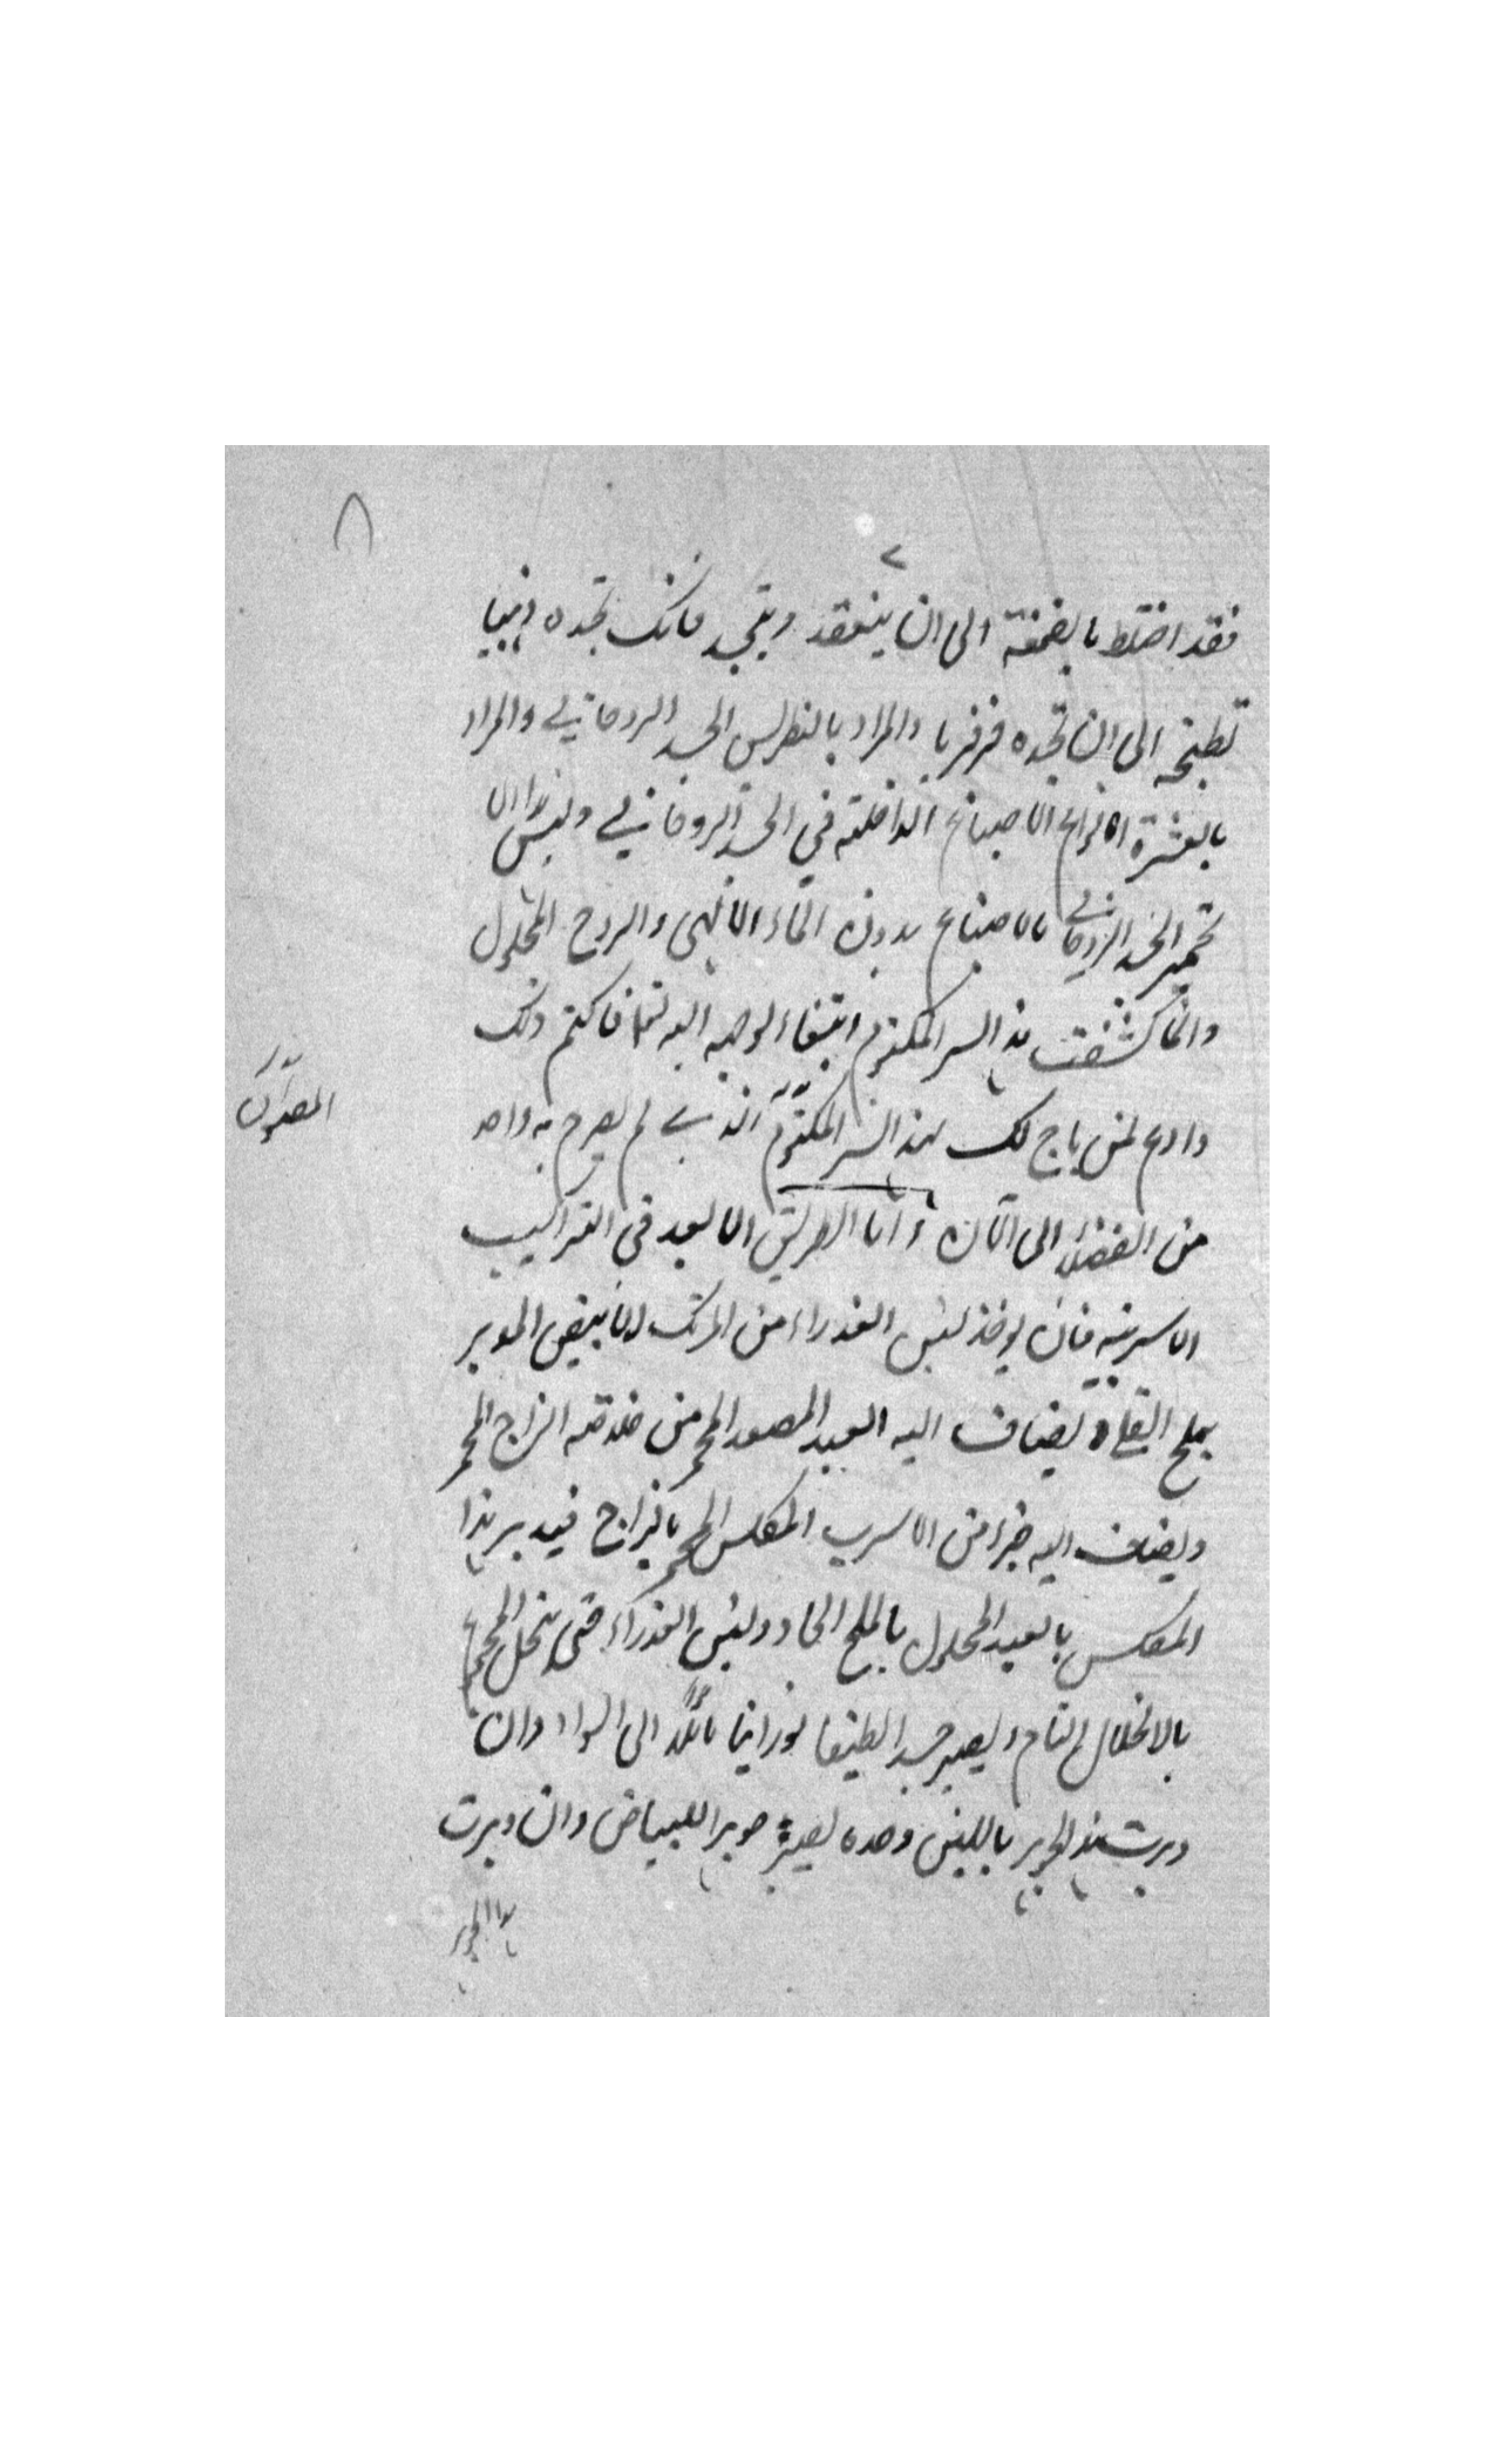 ٨
فقد اختلط بالصمغة الى ان ينعقد ويتجسد فانك تجده ذهبيا
تطبخه الى ان تجده فرفيريا والمراد بالنطرس الجسد الروحاني والمراد
بالعشرة انواع الاصباغ الداخلة في الجسد الروحاني وليس هذا الا
تحمير الجسد الروحاني بالاصباغ بدون الماء الالهى والروح المحلول
وانما كشفت هذا السر المكتوم ابتغاء لوجه الله تعالى فاكتم ذلك
وادع لمن باح لك بهذا السر المكتوم الذي لم يصرح به واحد
من الفضلاء الى الآن واما الطريق الابعد في التراكيب
الاسربية فان يوخذ لبن العذراء من المرتك الابيض المدبر
بملح القلى ويضاف اليه العبد المصعد المحمر من خلاصة الزاج المحمر
ويضاف اليه جزء من الاسرب المكلس المحمر بالزاج فيدبر هذا
المكلس بالعبد المحلول بالملح الحاد ولبن العذراء حتى ينحل المجموع
بالانحلال التام ويصير جسدا لطيفا نورانيا مائلا الى السواد وان
دبرت هذا الجوهر باللبن وحده يصير جوهرا للبياض وان دبرت
هذا الجوهر